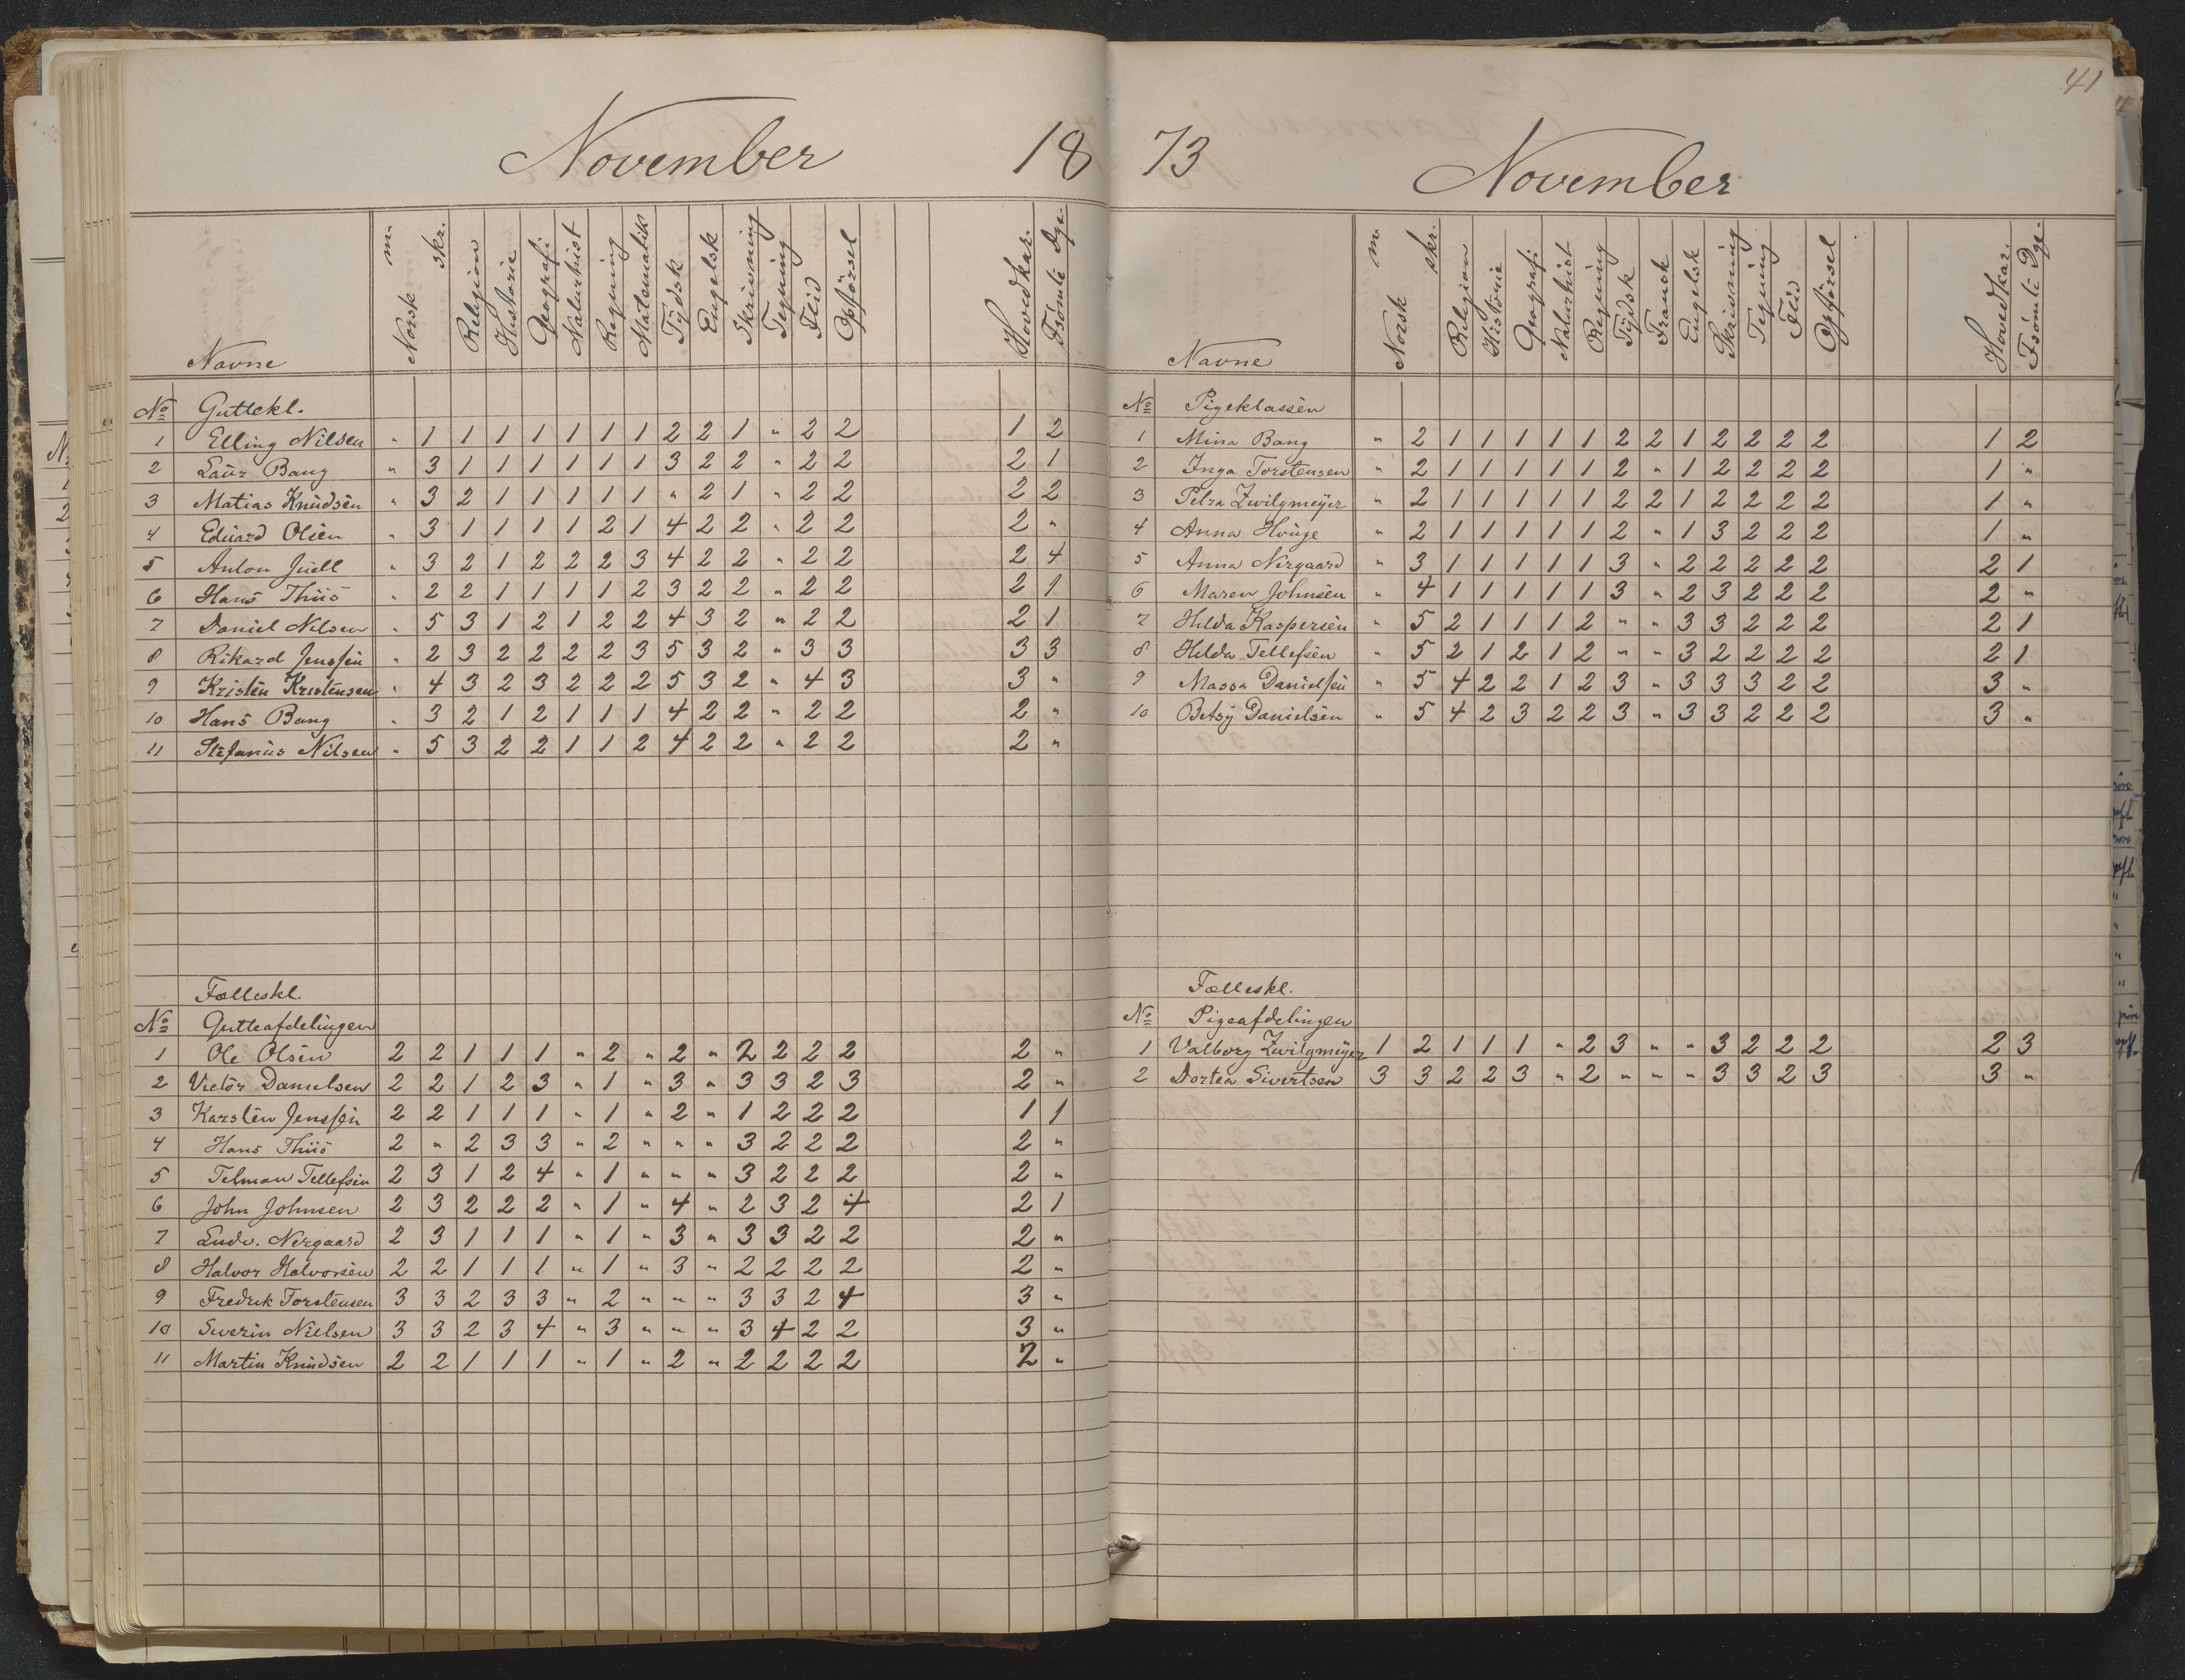 November 18
Navne Norsk m. skr. Religion Historie Geografi Naturhist Regning Matematik Tydsk Engelsk Skrivning Tegning Flid Opførsel Hovedkar. Fsömte Dge.
No Guttekl.
1 Elling Nilsen " 1 1 1 1 1 1 1 2 2 1 " 2 2 1 2
2 Laur Bang " 3 1 1 1 1 1 1 3 2 2 " 2 2 2 1
3 Matias Knudsen " 3 2 1 1 1 1 1 " 2 1 " 2 2 2 2
4 Eduard Olsen " 3 1 1 1 1 2 1 4 2 2 " 2 2 2 "
5 Anton Juell " 3 2 1 2 2 2 3 4 2 2 " 2 2 2 4
6 Hans Thiis " 2 2 1 1 1 1 2 3 2 2 " 2 2 2 1
7 Daniel Nilsen " 5 3 1 2 1 2 2 4 3 2 " 2 2 2 1
8 Rikard Jenssen " 2 3 2 2 2 2 3 5 3 2 " 3 3 3 3
9 Kristen Kristensen " 4 3 2 3 2 2 2 5 3 2 " 4 3 3 "
10 Hans Bang " 3 2 1 2 1 1 1 4 2 2 " 2 2 2 "
11 Stefanus Nilsen " 5 3 2 2 1 1 2 4 2 2 " 2 2 2 "
Fælleskl.
No Gutteafdelingen
1 Ole Olsen 2 2 1 1 1 " 2 " 2 " 2 2 2 2 2 "
2 Victor Danielsen 2 2 1 2 3 " 1 " 3 " 3 3 2 3 2 "
3 Karsten Jenssen 2 2 1 1 1 " 1 " 2 " 1 2 2 2 1 1
4 Hans Thiis 2 " 2 3 3 " 2 " " " 3 2 2 2 2 "
5 Telman Tellefsen 2 3 1 2 4 " 1 " " " 3 2 2 2 2 "
6 John Johnsen 2 3 2 2 2 " 1 " 4 " 2 3 2 4 2 1
7 Ludv. Nergaard 2 3 1 1 1 " 1 " 3 " 3 3 2 2 2 "
8 Halvor Halvorsen 2 2 1 1 1 " 1 " 3 " 2 2 2 2 2 "
9 Fredrik Torstensen 3 3 2 3 3 " 2 " " " 3 3 2 4 3 "
10 Severin Nielsen 3 3 2 3 4 " 3 " " " 3 4 2 2 3 "
11 Martin Knudsen 2 2 1 1 1 " 1 " 2 " 2 2 2 2 2 "
41
73 November
Navne Norsk m. skr. Religion Historie Geografi Naturhist Regning Tydsk Fransk Engelsk Skrivning Tegning Flid Opførsel Hovedkar. Fsömte Dge.
No Pigeklassen
1 Mina Bang " 2 1 1 1 1 1 2 2 1 2 2 2 2 1 2
2 Inga Torstensen " 2 1 1 1 1 1 2 " 1 2 2 2 2 1 "
3 Petra Zwilgmeyer " 2 1 1 1 1 1 2 2 1 2 2 2 2 1 "
4 Anna Houge " 2 1 1 1 1 1 2 " 1 3 2 2 2 1 "
5 Anna Nergaard " 3 1 1 1 1 1 3 " 2 2 2 2 2 2 1
6 Maren Johnsen " 4 1 1 1 1 1 3 " 2 3 2 2 2 2 "
7 Hilda Kaspersen " 5 2 1 1 1 2 " " 3 3 2 2 2 2 1
8 Hilda Tellefsen " 5 2 1 2 1 2 " " 3 2 2 2 2 2 1
9 Massa Danielsen " 5 4 2 2 1 2 3 " 3 3 3 2 2 3 "
10 Betsy Danielsen " 5 4 2 3 2 2 3 " 3 3 2 2 2 3 "
Fælleskl.
No Pigeafdelingen
1 Valborg Zwilgmeyer 1 2 1 1 1 " 2 3 " " 3 2 2 2 2 3
2 Dortea Sivertsen 3 3 2 2 3 " 2 " " " 3 3 2 3 3 "